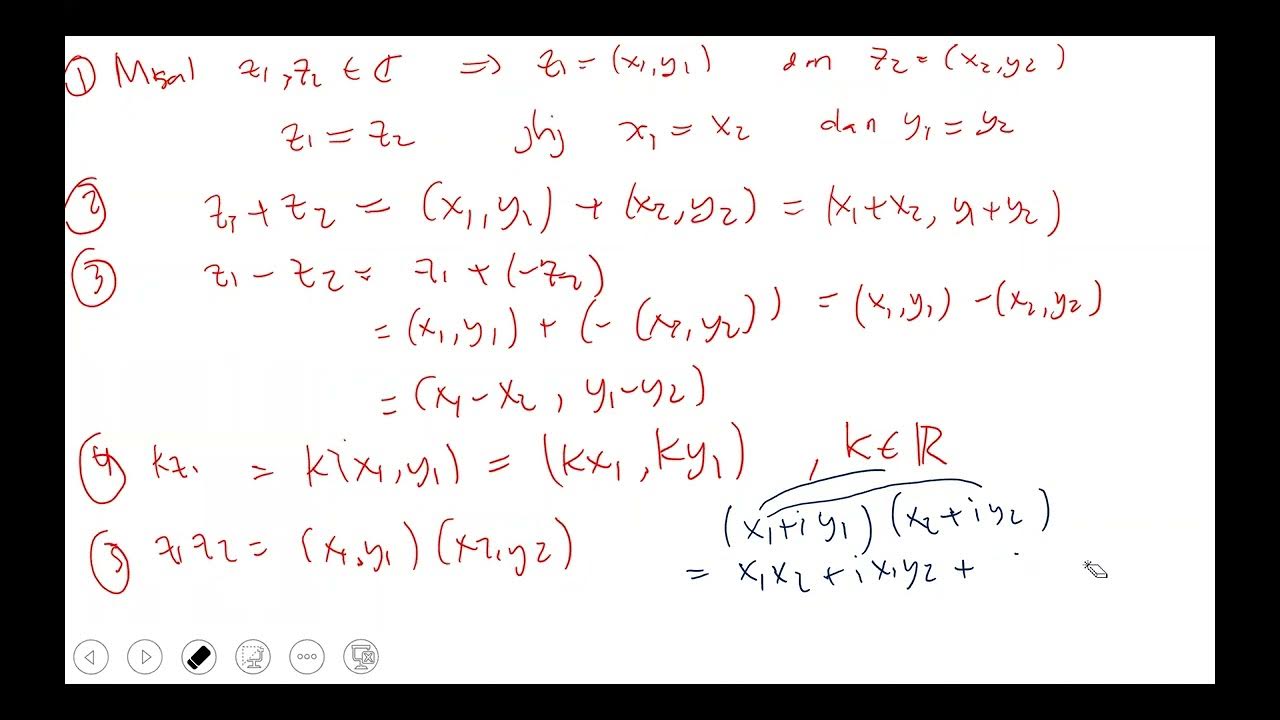 ① Misal z₁, z₂ ∈ ℂ ⇒ z₁ = (x₁, y₁) dan z₂ = (x₂, y₂)
z₁ = z₂ jhj x₁ = x₂ dan y₁ = y₂
② z₁ + z₂ = (x₁, y₁) + (x₂, y₂) = (x₁ + x₂, y₁ + y₂)
③ z₁ - z₂ = z₁ + (-z₂)
= (x₁, y₁) + (-(x₂, y₂)) = (x₁, y₁) - (x₂, y₂)
= (x₁ - x₂, y₁ - y₂)
④ kz₁ = k(x₁, y₁) = (kx₁, ky₁), k ∈ ℝ
⑤ z₁z₂ = (x₁, y₁)(x₂, y₂)
(x₁ + i y₁)(x₂ + i y₂)
= x₁x₂ + i x₁y₂ +